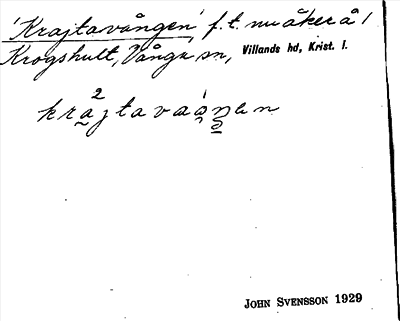 'Krajtavången' f. t. nu åker å /
Krogshult, Vånga sn, Villands hd, Krist. l.
2
krajtavaaŋen
JOHN SVENSSON 1929